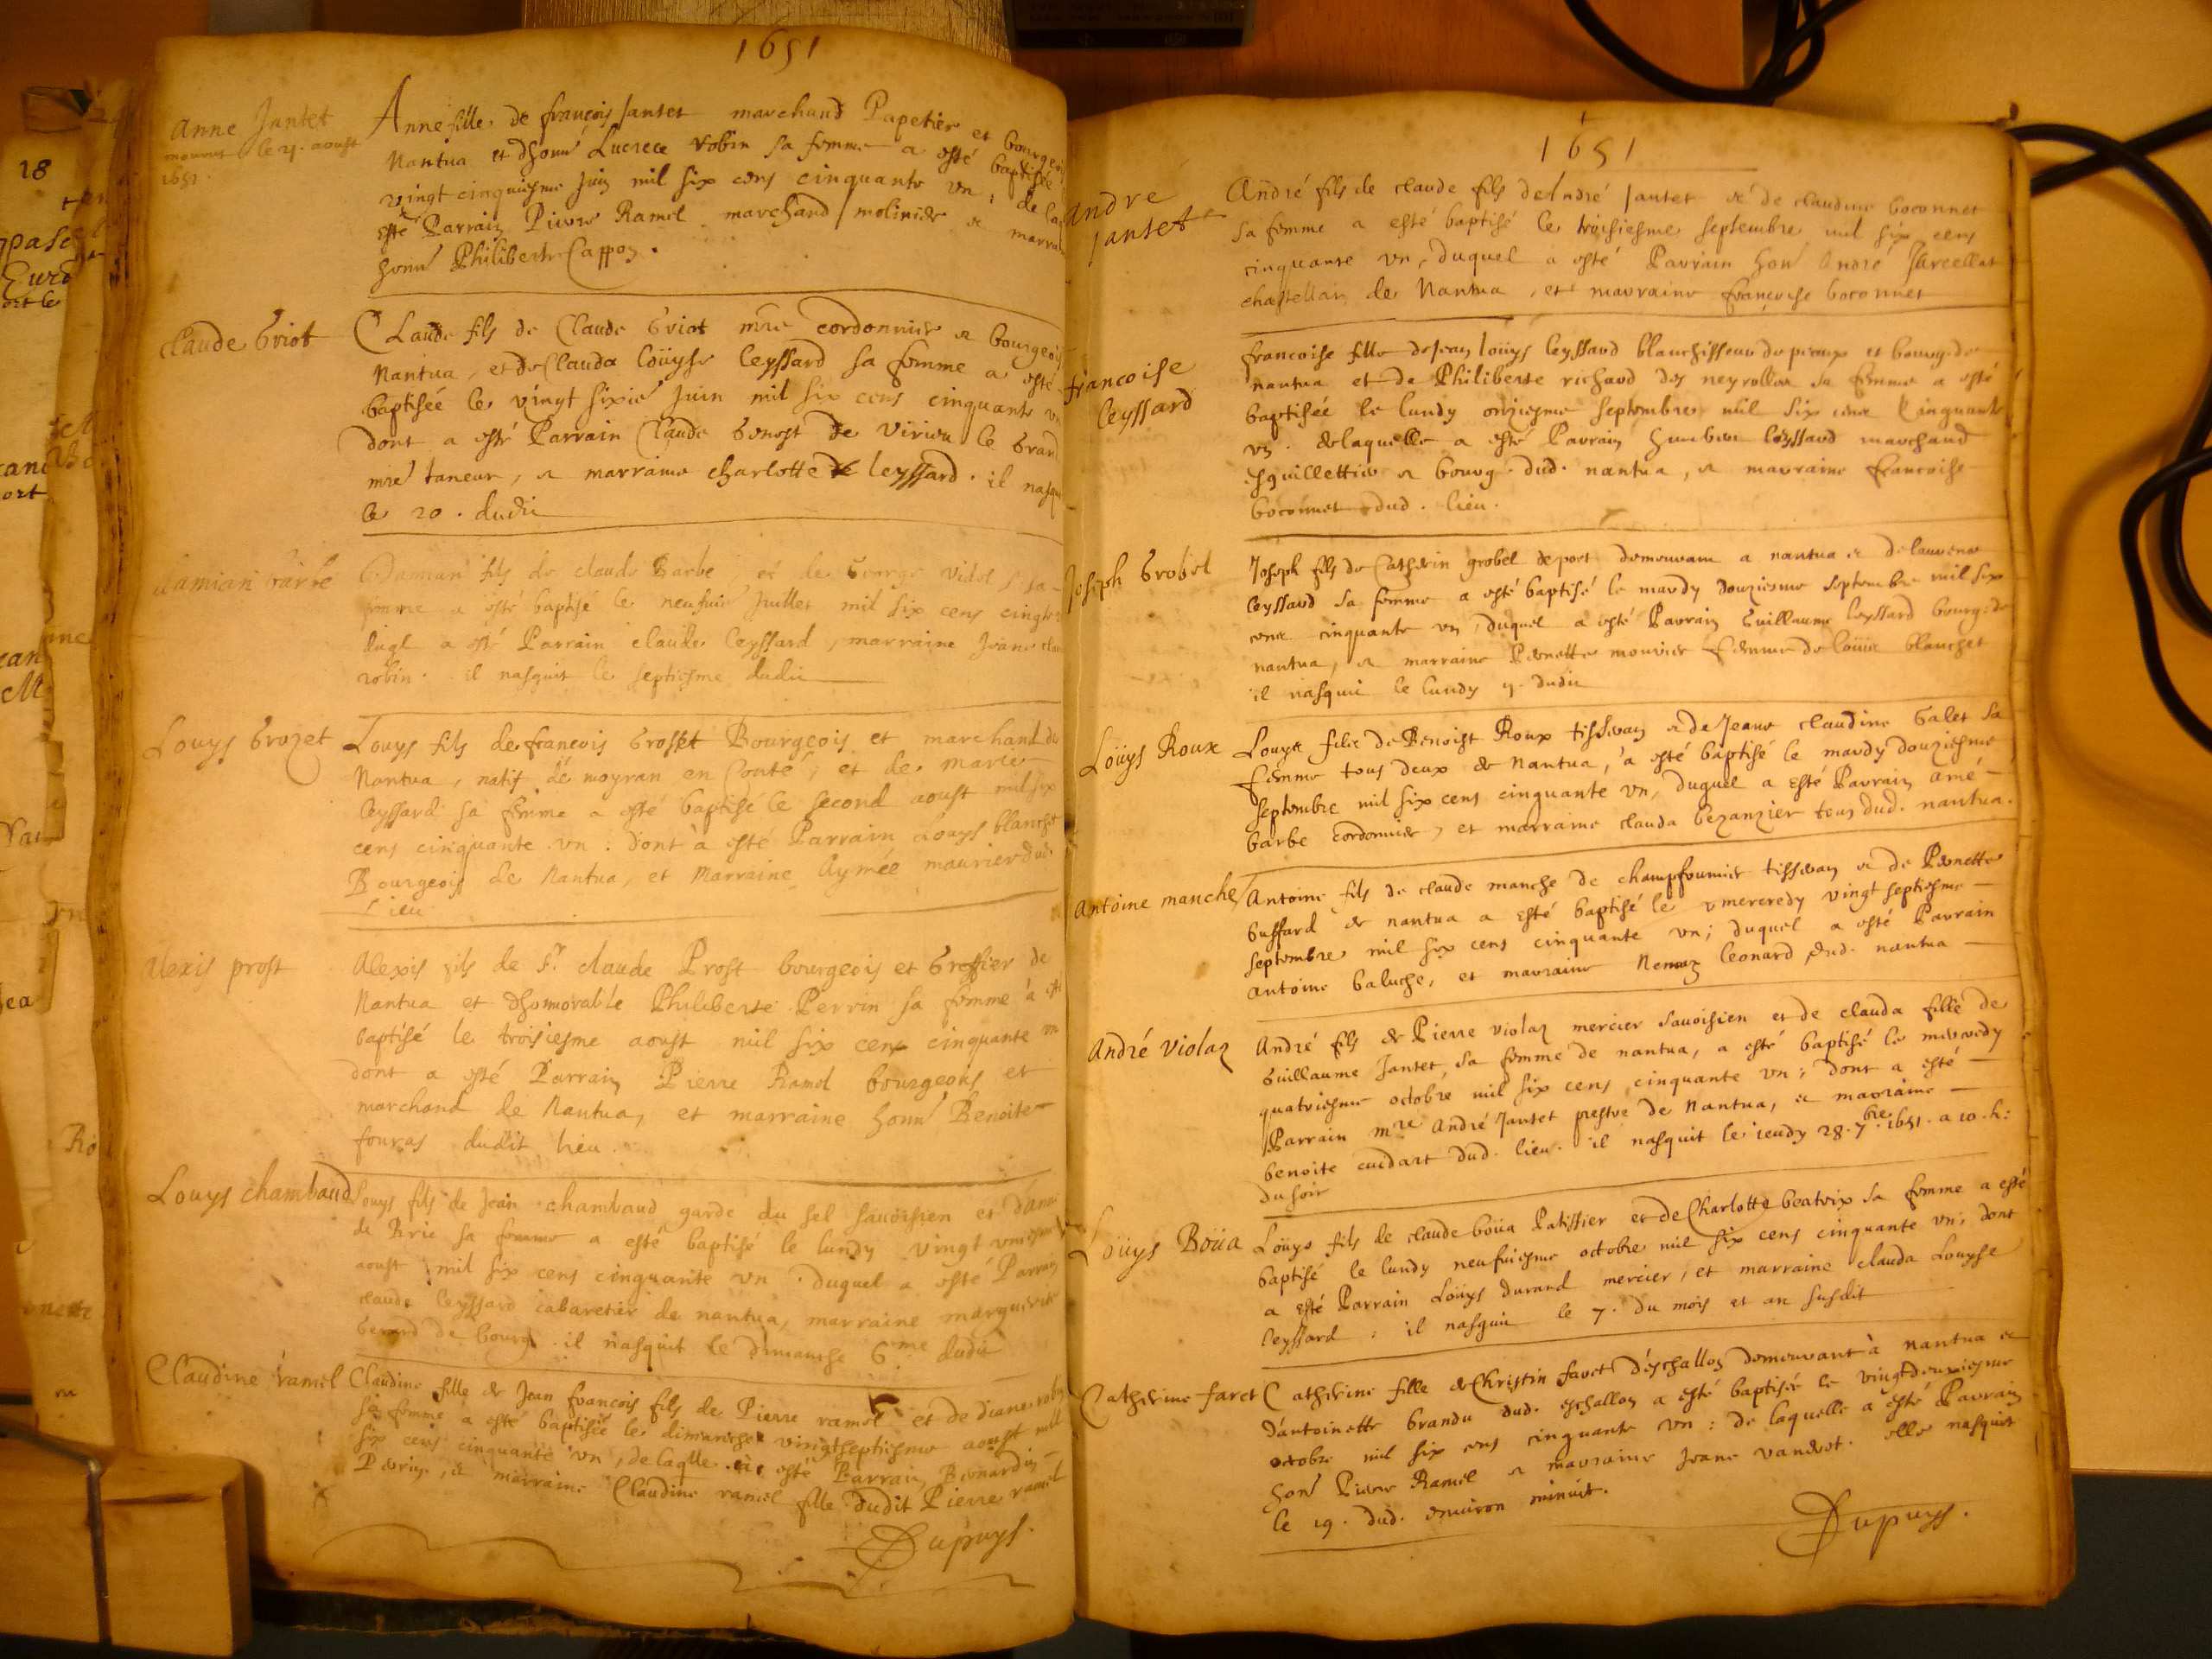 1651
Anne Jantet
mourut le 21. aoust
1651.
Anne fille de françois Jantet marchand Papetier et bourgeois
Nantua et dhonne Lucrece robin sa femme a esté baptisée
vingt cinquiesme Juin mil six cens cinquante un, de la
esté Parrain Pierre Ramel marchand molinier et marra
honne Philiberte Cappon.
claude Griot
Claude fils de Claude Griot mre cordonnier et bourgeois
Nantua, et de Clauda Loüyse leyssard sa femme a esté
baptisée le vingt sixie Juin mil six cens cinquante un
dont a esté Parrain Claude Genost de virieu le Grand
mre taneur, et marraine charlotte leyssard. il nasqui
le 20. dudit
Damian barbe
Damian fils de claude Barbe et de George vidol sa
femme a esté baptisé le neufuie Juillet mil six cens cinqte
duql a esté Parrain claude leyssard, marraine Jeane clau
robin. il nasquit le septiesme dudit
Louys Grozet
Louys fils de francois Grosset Bourgeois et marchand du
Nantua, natif de moyran en Conté, et de marie
leyssard sa femme a esté baptisé le second aoust mil six
cens cinquante un: dont à esté Parrain Louys blanchet
Bourgeois de Nantua, et Marraine Aymée maurier dud.
Lieu
Alexis prost
Alexis fils de Sr. claude Prost bourgeois et Greffier de
Nantua et dhonnorable Philiberte Perrin sa femme à est
baptisé le troisiesme aoust mil six cens cinquante un
dont a esté Parrain Pierre Ramel bourgeois et
marchand de Nantua, et marraine honne Benoite
fouras dudit lieu.
Louys chambaud
Louys fils de Jean chambaud garde du sel sauoisien et d'anne
de Brie sa femme a esté baptisé le lundy vingt uniesme
aoust mil six cens cinquante un. duquel a esté Parrain
claude leyssard cabaretier de nantua, marraine marguerite
berard de bourg. il nasquit le dimanche 6me dudit
Claudine ramel
Claudine fille de Jean francois fils de Pierre ramel et de diane robin
sa femme a esté baptisée le dimanche vingtseptiesme aoust mil
six cens cinquante un, de laqlle a esté Parrain Bernardin
Perrin, et marraine Claudine ramel fille dudit Pierre ramel
Dupuys.
1651
Andre
Jantet
André fils de claude fils de André Jantet et de claudine boconnet
sa femme a esté baptisé le troisiesme septembre mil six cens
cinquante un, duquel a esté Parrain hone André
chastellain de Nantua, et marraine francoise boconnet
francoise
leyssard
francoise fille de Jean loüys leyssard blanchisseur de peaux et bourg. de
nantua et de Philiberte richard des neyrolles sa femme a esté
baptisée le lundy onziesme septembre mil six cens Cinquante
un. de laquelle a esté Parrain humbert leyssard marchand
esguillettier et bourg. dud. nantua, et marraine francoise
boconnet dud. lieu.
Joseph Grobel
Joseph fils de Catherin grobel de port demeurant a nantua et de laurence
leyssard sa femme a esté baptisé le mardy douziesme septembre mil six
cens cinquante un, duquel a esté Parrain Guillaume leyssard bourg. de
nantua, et marraine Pernette mouvier femme de loüis blanchet
il nasquit le lundy 4. dudit
Loüys Roux
Louys filz de Benoist Roux tisseran et de Jeane claudine Galet sa
femme tous deux de Nantua, a esté baptisé le mardy douziesme
septembre mil six cens cinquante un, duquel a esté Parrain Amé
barbe cordonnier, et marraine clauda bezanzier tous dud. nantua.
Antoine manche
Antoine fils de claude manche de champfourmier tisseran et de Pernette
Guffard de nantua a esté baptisé le mercredy vingt septiesme
septembre mil six cens cinquante un; duquel a esté Parrain
antoine baluche, et marraine leonard dud. nantua
André violaz
André fils de Pierre violaz mercier sauoisien et de clauda fille de
Guillaume Jantet, sa femme de nantua, a esté baptisé le mercredy
quatriesme octobre mil six cens cinquante un; dont a esté
Parrain mre André Jantet prestre de Nantua, et marraine
benoite cuidart dud. lieu. il nasquit le ieudy 28. 7bre. 1651. a 10. h:
du soir
Loüys Boüa
Loüys fils de claude boüa Patissier et de Charlotte beatrix sa femme a esté
baptisé le lundy neufuiesme octobre mil six cens cinquante un; dont
a esté Parrain Loüys durand mercier, et marraine clauda Louyse
leyssard: il nasquit le 7. du mois et an susdit
Catherine faret
Catherine fille de Christin faret d'eschallon demeurant à nantua et
d'antoinette brandu dud. eschallon a esté baptisée le vingtdeuxiesme
octobre mil six cens cinquante un: de laquelle a esté Parrain
hone Pierre Ramel et marraine Jeane vandrot. elle nasquit
le 19. dud. enuiron minuit.
Dupuys.